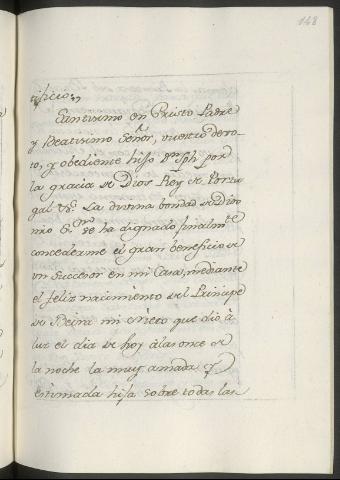 148
tificio,
Santisimo en Cristo Padre
y Beatisimo Señor, vuestro devo-
to, y obediente hijo Dn. Jph por
la gracia de Dios Rey de Portu
gal &a. La divina bondad de Dios
nro Sr. se ha dignado finalmte
concederme el gran beneficio de
un Succesor en mi Casa, mediante
el feliz nacimiento del Principe
de Beira mi Nieto que dió à
luz el dia de hoy à las once de
la noche la muy amada y
estimada hija sobre todas las